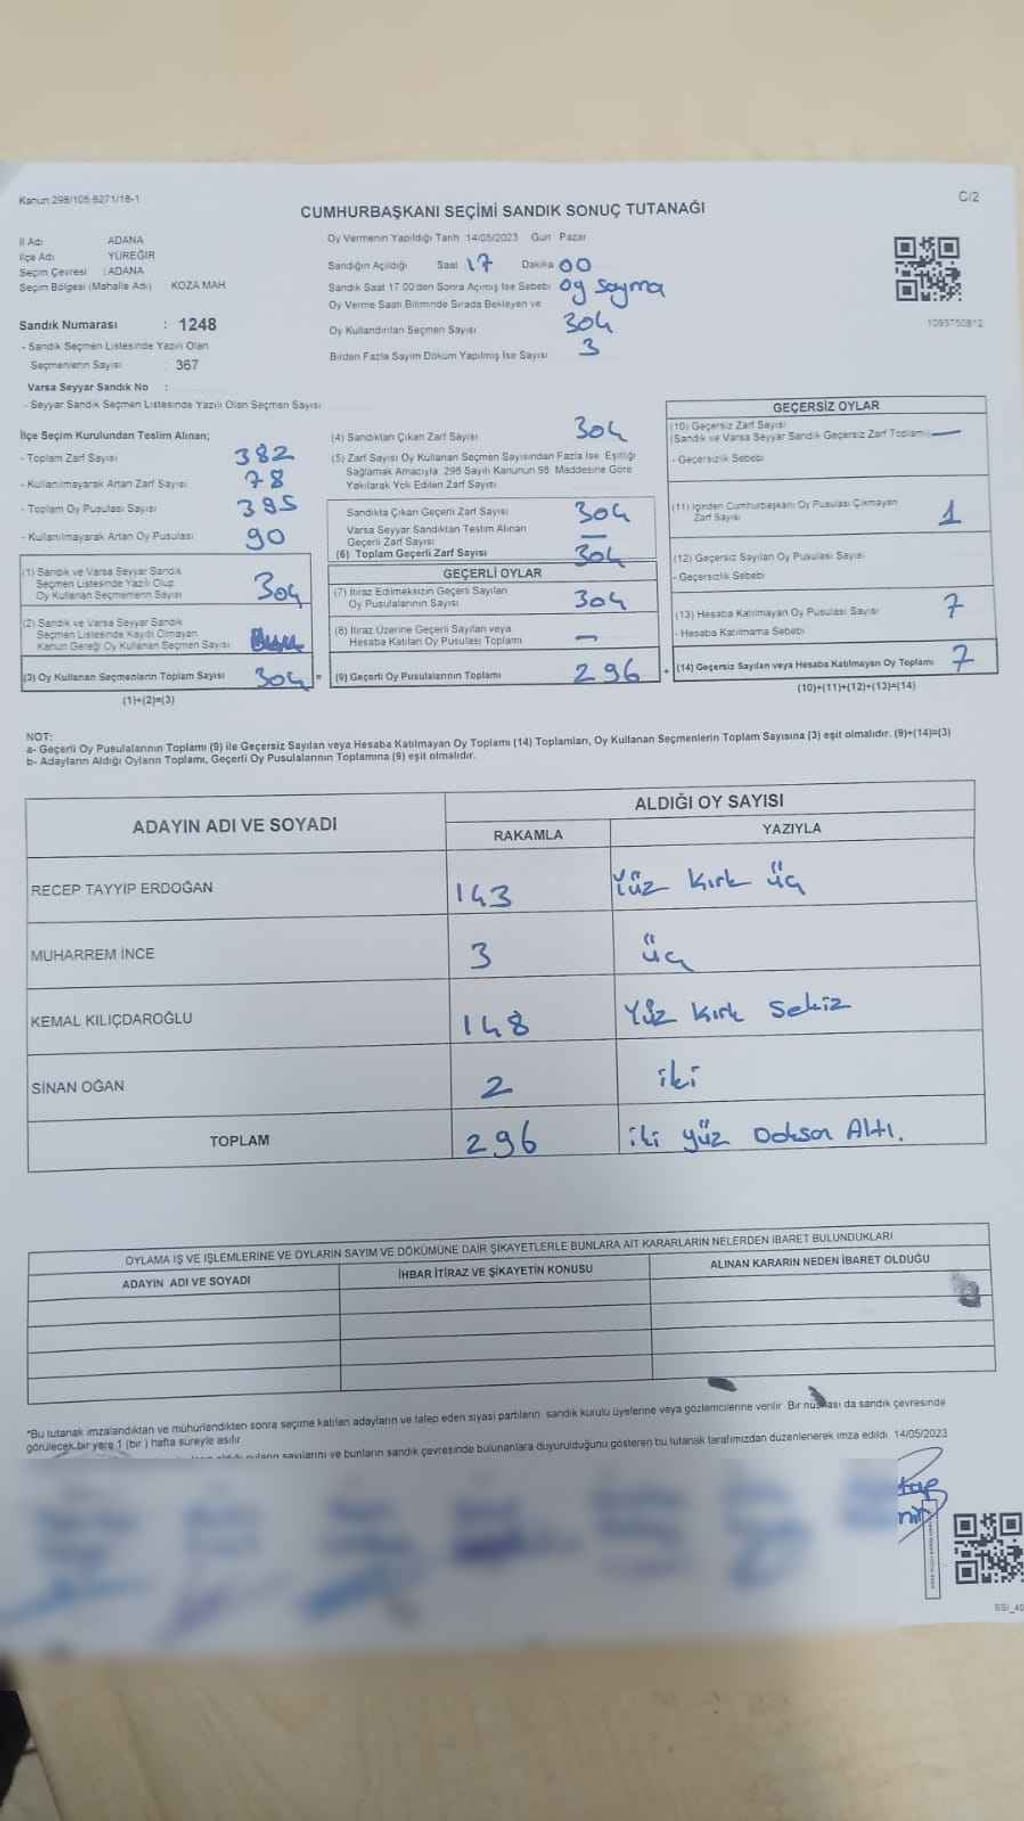 Kanun 298/105 6271/18-1
C/2
CUMHURBAŞKANI SEÇİMİ SANDIK SONUÇ TUTANAĞI
İl Adı : ADANA
İlçe Adı : YÜREĞİR
Seçim Çevresi : ADANA
Seçim Bölgesi (Mahalle Adı) KOZA MAH
Sandık Numarası : 1248
- Sandık Seçmen Listesinde Yazılı Olan
Seçmenlerin Sayısı : 367
Varsa Seyyar Sandık No :
- Seyyar Sandık Seçmen Listesinde Yazılı Olan Seçmen Sayısı
Oy Vermenin Yapıldığı Tarih 14/05/2023 Gün Pazar
Sandığın Açıldığı Saat 17 Dakika 00
Sandık Saat 17.00'den Sonra Açılmış İse Sebebi oy sayma
Oy Verme Saati Bitiminde Sırada Bekleyen ve
Oy Kullandırılan Seçmen Sayısı 304
Birden Fazla Sayım Döküm Yapılmış İse Sayısı 3
1093750812
İlçe Seçim Kurulundan Teslim Alınan;
- Toplam Zarf Sayısı 382
- Kullanılmayarak Artan Zarf Sayısı 78
- Toplam Oy Pusulası Sayısı 385
- Kullanılmayarak Artan Oy Pusulası 90
(1) Sandık ve Varsa Seyyar Sandık
Seçmen Listesinde Yazılı Olup
Oy Kullanan Seçmenlerin Sayısı 304
(2) Sandık ve Varsa Seyyar Sandık
Seçmen Listesinde Kaydı Olmayan
Kanun Gereği Oy Kullanan Seçmen Sayısı
(3) Oy Kullanan Seçmenlerin Toplam Sayısı 304 =
(1)+(2)=(3)
(4) Sandıktan Çıkan Zarf Sayısı 304
(5) Zarf Sayısı Oy Kullanan Seçmen Sayısından Fazla İse Eşitliği
Sağlamak Amacıyla 298 Sayılı Kanunun 98. Maddesine Göre
Yakılarak Yok Edilen Zarf Sayısı
Sandıkta Çıkan Geçerli Zarf Sayısı 304
Varsa Seyyar Sandıktan Teslim Alınan
Geçerli Zarf Sayısı —
(6) Toplam Geçerli Zarf Sayısı 304
GEÇERLİ OYLAR
(7) İtiraz Edilmeksizin Geçerli Sayılan
Oy Pusulalarının Sayısı 304
(8) İtiraz Üzerine Geçerli Sayılan veya
Hesaba Katılan Oy Pusulası Toplamı —
(9) Geçerli Oy Pusulalarının Toplamı 296 +
GEÇERSİZ OYLAR
(10) Geçersiz Zarf Sayısı
(Sandık ve Varsa Seyyar Sandık Geçersiz Zarf Toplamı) —
- Geçersizlik Sebebi
(11) İçinden Cumhurbaşkanı Oy Pusulası Çıkmayan
Zarf Sayısı 1
(12) Geçersiz Sayılan Oy Pusulası Sayısı
- Geçersizlik Sebebi
(13) Hesaba Katılmayan Oy Pusulası Sayısı 7
- Hesaba Katılmama Sebebi
(14) Geçersiz Sayılan veya Hesaba Katılmayan Oy Toplamı 7
(10)+(11)+(12)+(13)=(14)
NOT:
a- Geçerli Oy Pusulalarının Toplamı (9) ile Geçersiz Sayılan veya Hesaba Katılmayan Oy Toplamı (14) Toplamları, Oy Kullanan Seçmenlerin Toplam Sayısına (3) eşit olmalıdır. (9)+(14)=(3)
b- Adayların Aldığı Oyların Toplamı, Geçerli Oy Pusulalarının Toplamına (9) eşit olmalıdır.
ADAYIN ADI VE SOYADI
ALDIĞI OY SAYISI
RAKAMLA YAZIYLA
RECEP TAYYİP ERDOĞAN 143 Yüz kırk üç
MUHARREM İNCE 3 üç
KEMAL KILIÇDAROĞLU 148 Yüz kırk sekiz
SİNAN OĞAN 2 iki
TOPLAM 296 iki yüz Doksan Altı.
OYLAMA İŞ VE İŞLEMLERİNE VE OYLARIN SAYIM VE DÖKÜMÜNE DAİR ŞİKAYETLERLE BUNLARA AİT KARARLARIN NELERDEN İBARET BULUNDUKLARI
ADAYIN ADI VE SOYADI İHBAR İTİRAZ VE ŞİKAYETİN KONUSU ALINAN KARARIN NEDEN İBARET OLDUĞU
*Bu tutanak imzalandıktan ve mühürlendikten sonra seçime katılan adayların ve talep eden siyasi partilerin sandık kurulu üyelerine veya gözlemcilerine verilir. Bir nüshası da sandık çevresinde
görülecek bir yere 1 (bir) hafta süreyle asılır.
sayılarını ve bunların sandık çevresinde bulunanlara duyurulduğunu gösteren bu tutanak tarafımızdan düzenlenerek imza edildi. 14/05/2023